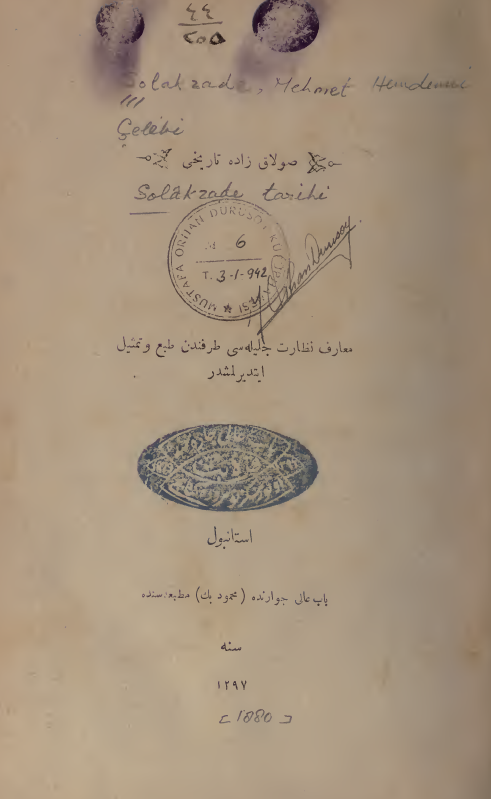 ٤٤
٢٥٥
Solakzade, Mehmet Hemdemi
Çelebi
صولاق زاده تاریخی
Solâkzade tarihi
MUSTAFA ORHAN DURUSOY
6
T. 3-1-942
Orhan Durusoy
معارف نظارت جلیله‌سی طرفندن طبع وتمثیل
ایتدیرلمشدر
استانبول
باب عالی جوارنده (محمود بك) مطبعه‌سنده
سنه
١٢٩٧
[1880]